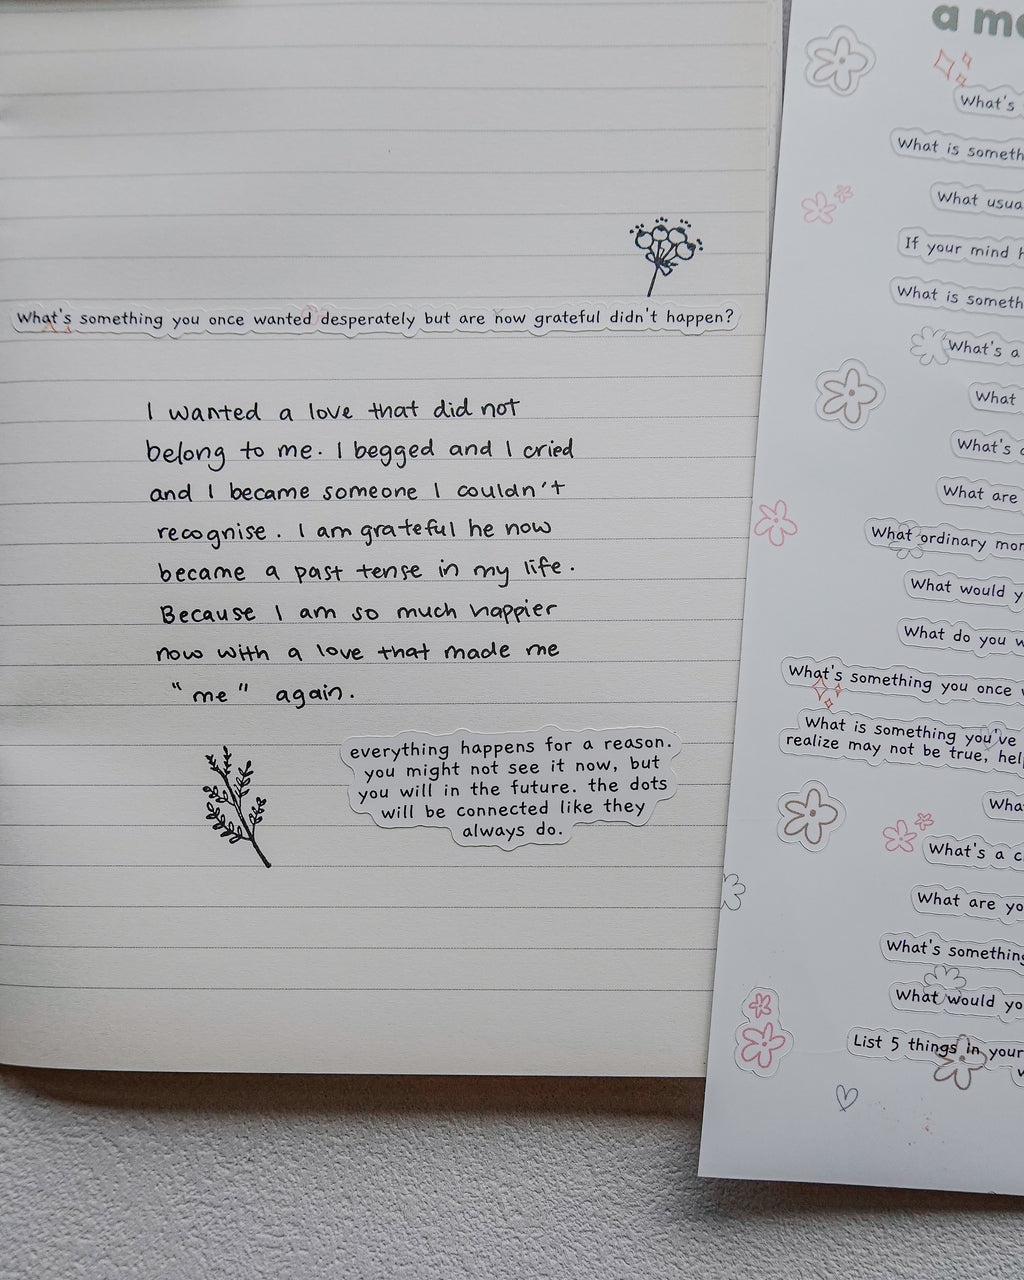 What's something you once wanted desperately but are now grateful didn't happen?
I wanted a love that did not
belong to me. I begged and I cried
and I became someone I couldn't
recognise. I am grateful he now
became a past tense in my life.
Because I am so much happier
now with a love that made me
"me" again.
everything happens for a reason.
you might not see it now, but
you will in the future. the dots
will be connected like they
always do.
a
What's
What is
What
If your mind
What is
What's a
What
What's
What are
What ordinary
What would
What do you
What's something you once
What is something you've
realize may not be true,
What's a
What are
What's something
What would
List 5 things in your